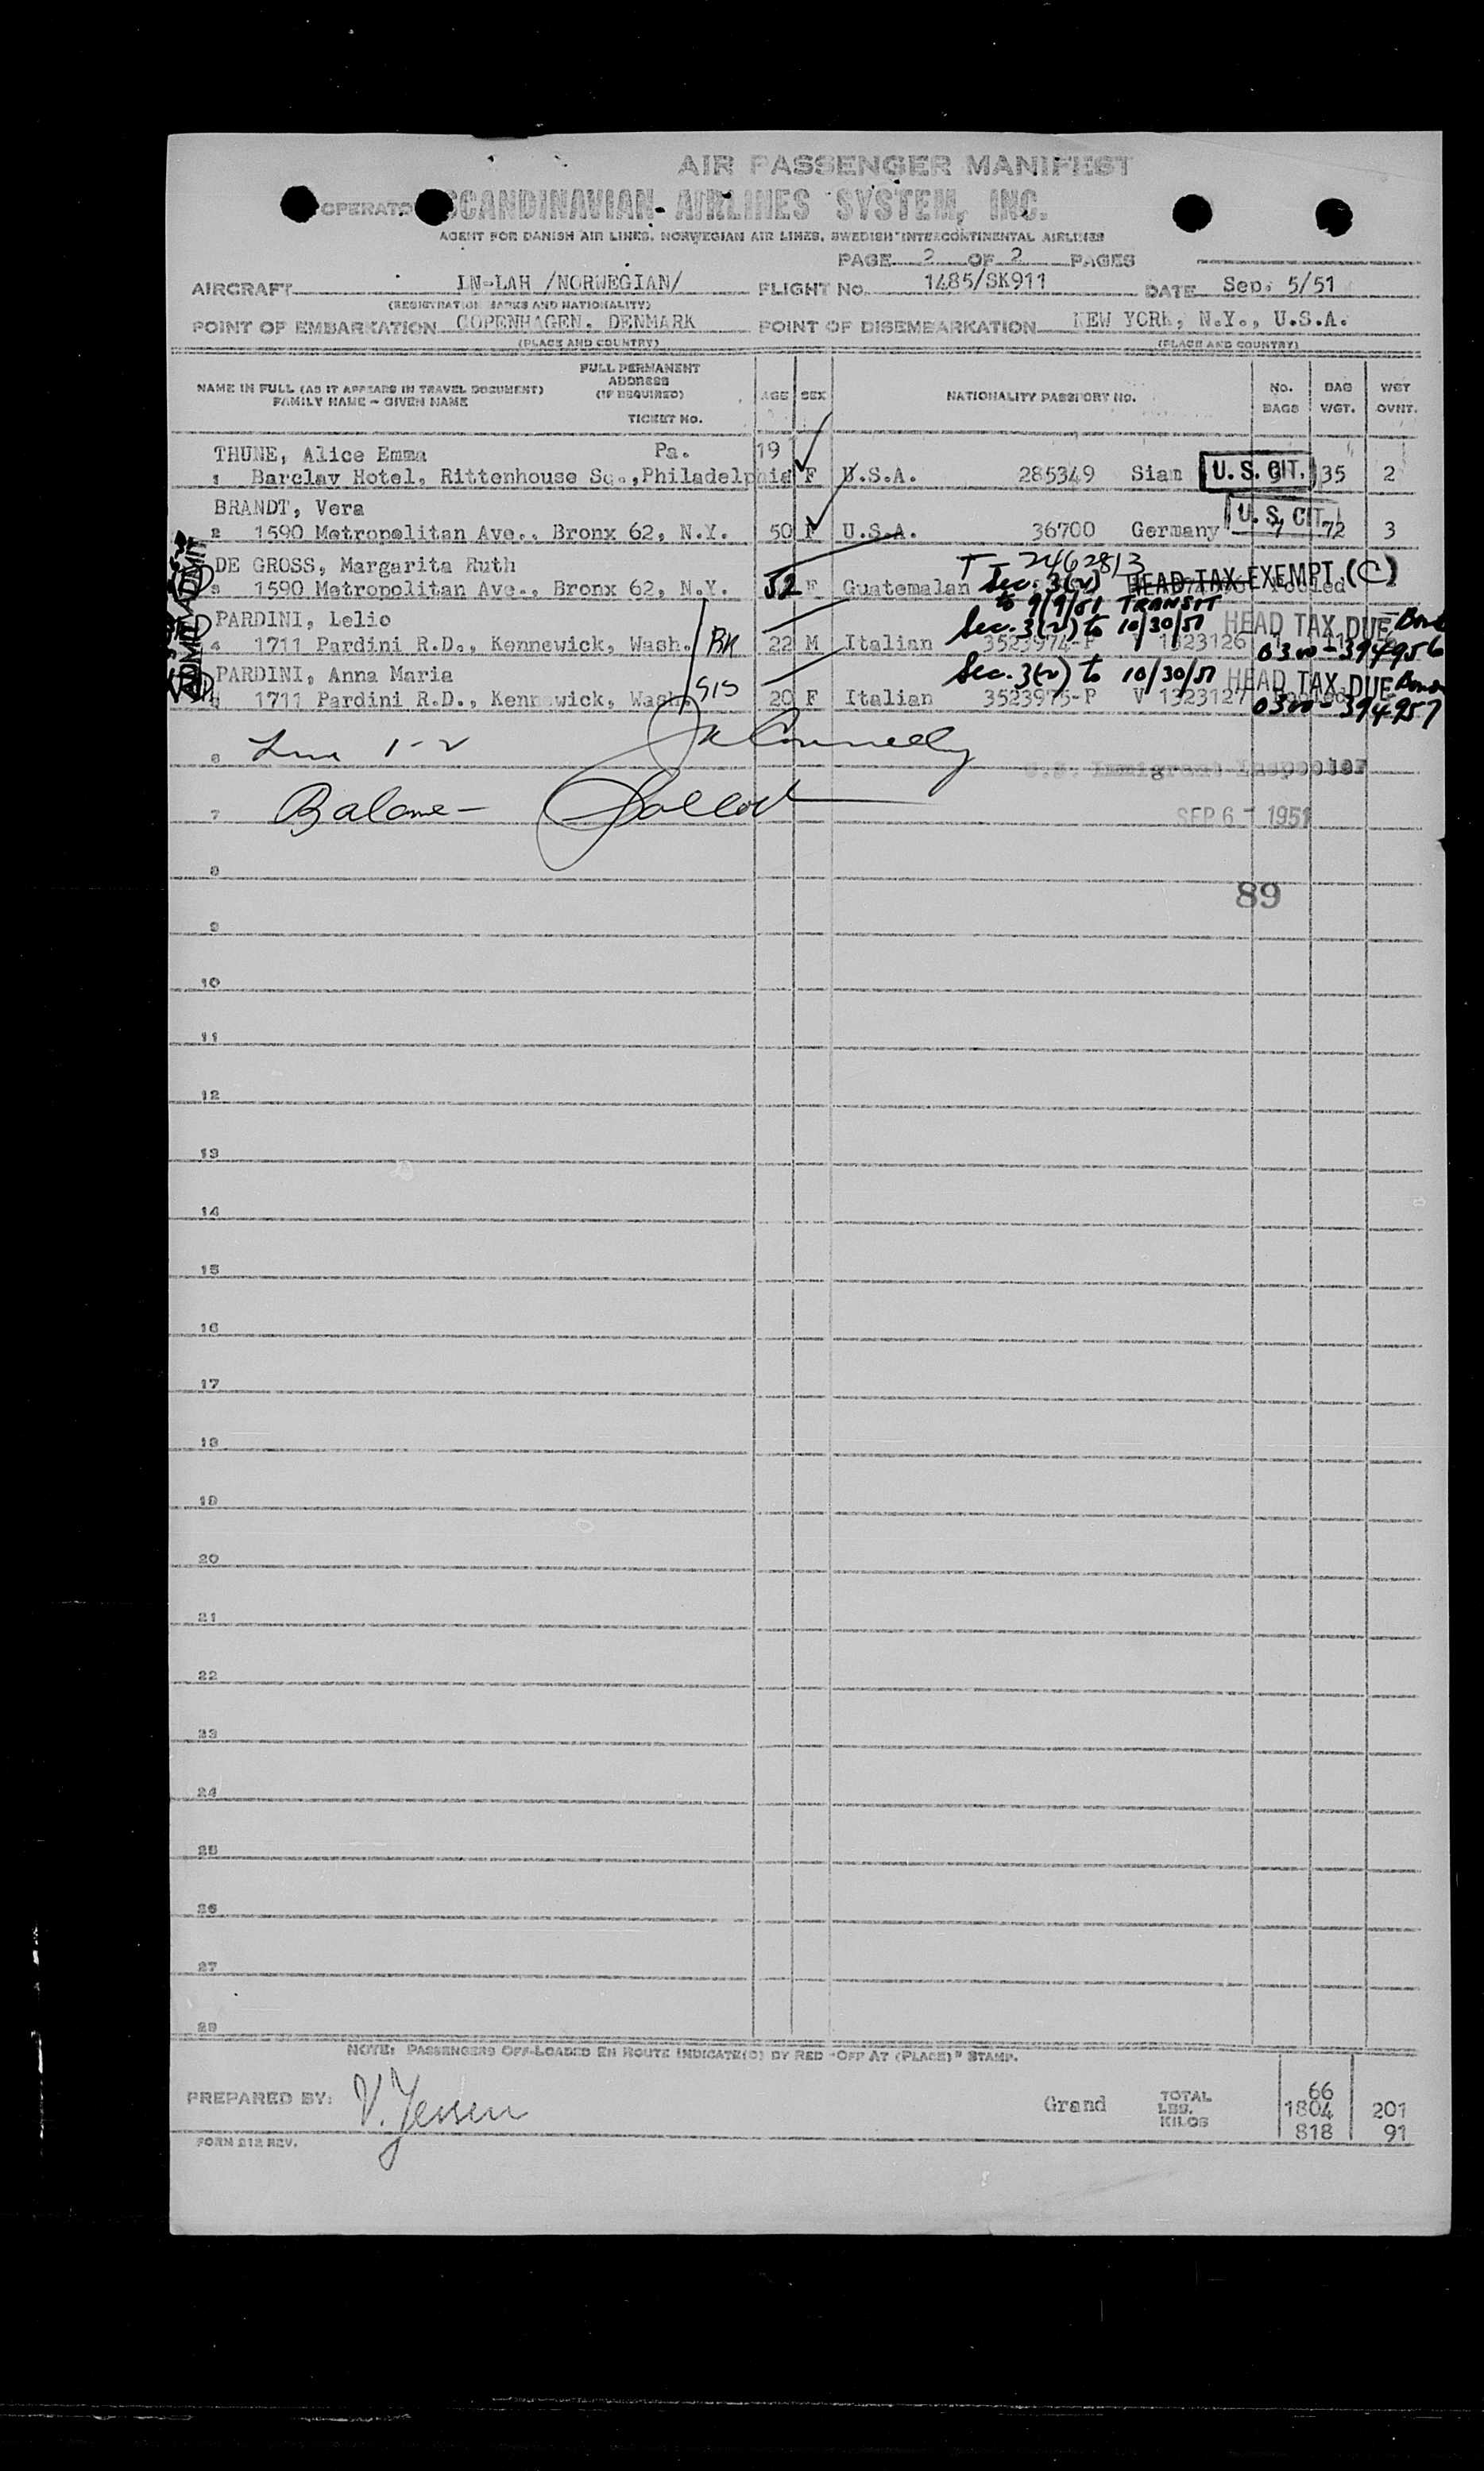 AIR PASSENGER MANIFEST
SCANDINAVIAN AIRLINES SYSTEM, INC.
AGENT FOR DANISH AIR LINES, NORWEGIAN AIR LINES, SWEDISH INTERCONTINENTAL AIRLINES
PAGE 2 OF 2 PAGES
AIRCRAFT LN-LAH /NORWEGIAN/ FLIGHT No. 1485/SK911 DATE Sep. 5/51
(REGISTRATION MARKS AND NATIONALITY)
POINT OF EMBARKATION COPENHAGEN, DENMARK POINT OF DISEMBARKATION NEW YORK, N.Y., U.S.A.
(PLACE AND COUNTRY) (PLACE AND COUNTRY)
FULL PERMANENT
NAME IN FULL (AS IT APPEARS IN TRAVEL DOCUMENT) ADDRESS AGE SEX NATIONALITY PASSPORT No. No. BAG WGT
FAMILY NAME - GIVEN NAME (IF REQUIRED) BAGS WGT. OVHT.
TICKET NO.
THUNE, Alice Emma Pa. 19
1 Barclay Hotel, Rittenhouse Sq., Philadelphia F U.S.A. 285349 Siam U. S. CIT. 35 2
BRANDT, Vera U. S. CIT.
2 1590 Metropolitan Ave., Bronx 62, N.Y. 50 F U.S.A. 36700 Germany 72 3
DE GROSS, Margarita Ruth T 2462813
3 1590 Metropolitan Ave., Bronx 62, N.Y. 52 F Guatemalan Sec. 3(2) HEAD TAX EXEMPT (C) Pooled
to 9/9/51 TRANSIT
PARDINI, Lelio Sec. 3(2) to 10/30/51 HEAD TAX DUE
4 1711 Pardini R.D., Kennewick, Wash. BR 22 M Italian 3523974-P 1323126 0300-394956
PARDINI, Anna Maria Sec. 3(2) to 10/30/51 HEAD TAX DUE
5 1711 Pardini R.D., Kennewick, Wash. SIS 20 F Italian 3523975-P V 1323127 0300-394957
ADMIT ADMIT
6 Line 1-2
U.S. Immigrant Inspector
7 Balance
SEP 6 - 1951
8
89
9
10
11
12
13
14
15
16
17
18
19
20
21
22
23
24
25
26
27
28
NOTE: PASSENGERS OFF-LOADED EN ROUTE INDICATE(D) BY RED "OFF AT (PLACE)" STAMP.
PREPARED BY: V. Jessen Grand TOTAL 66
LBS. 1804 201
KILOS 818 91
FORM 212 REV.